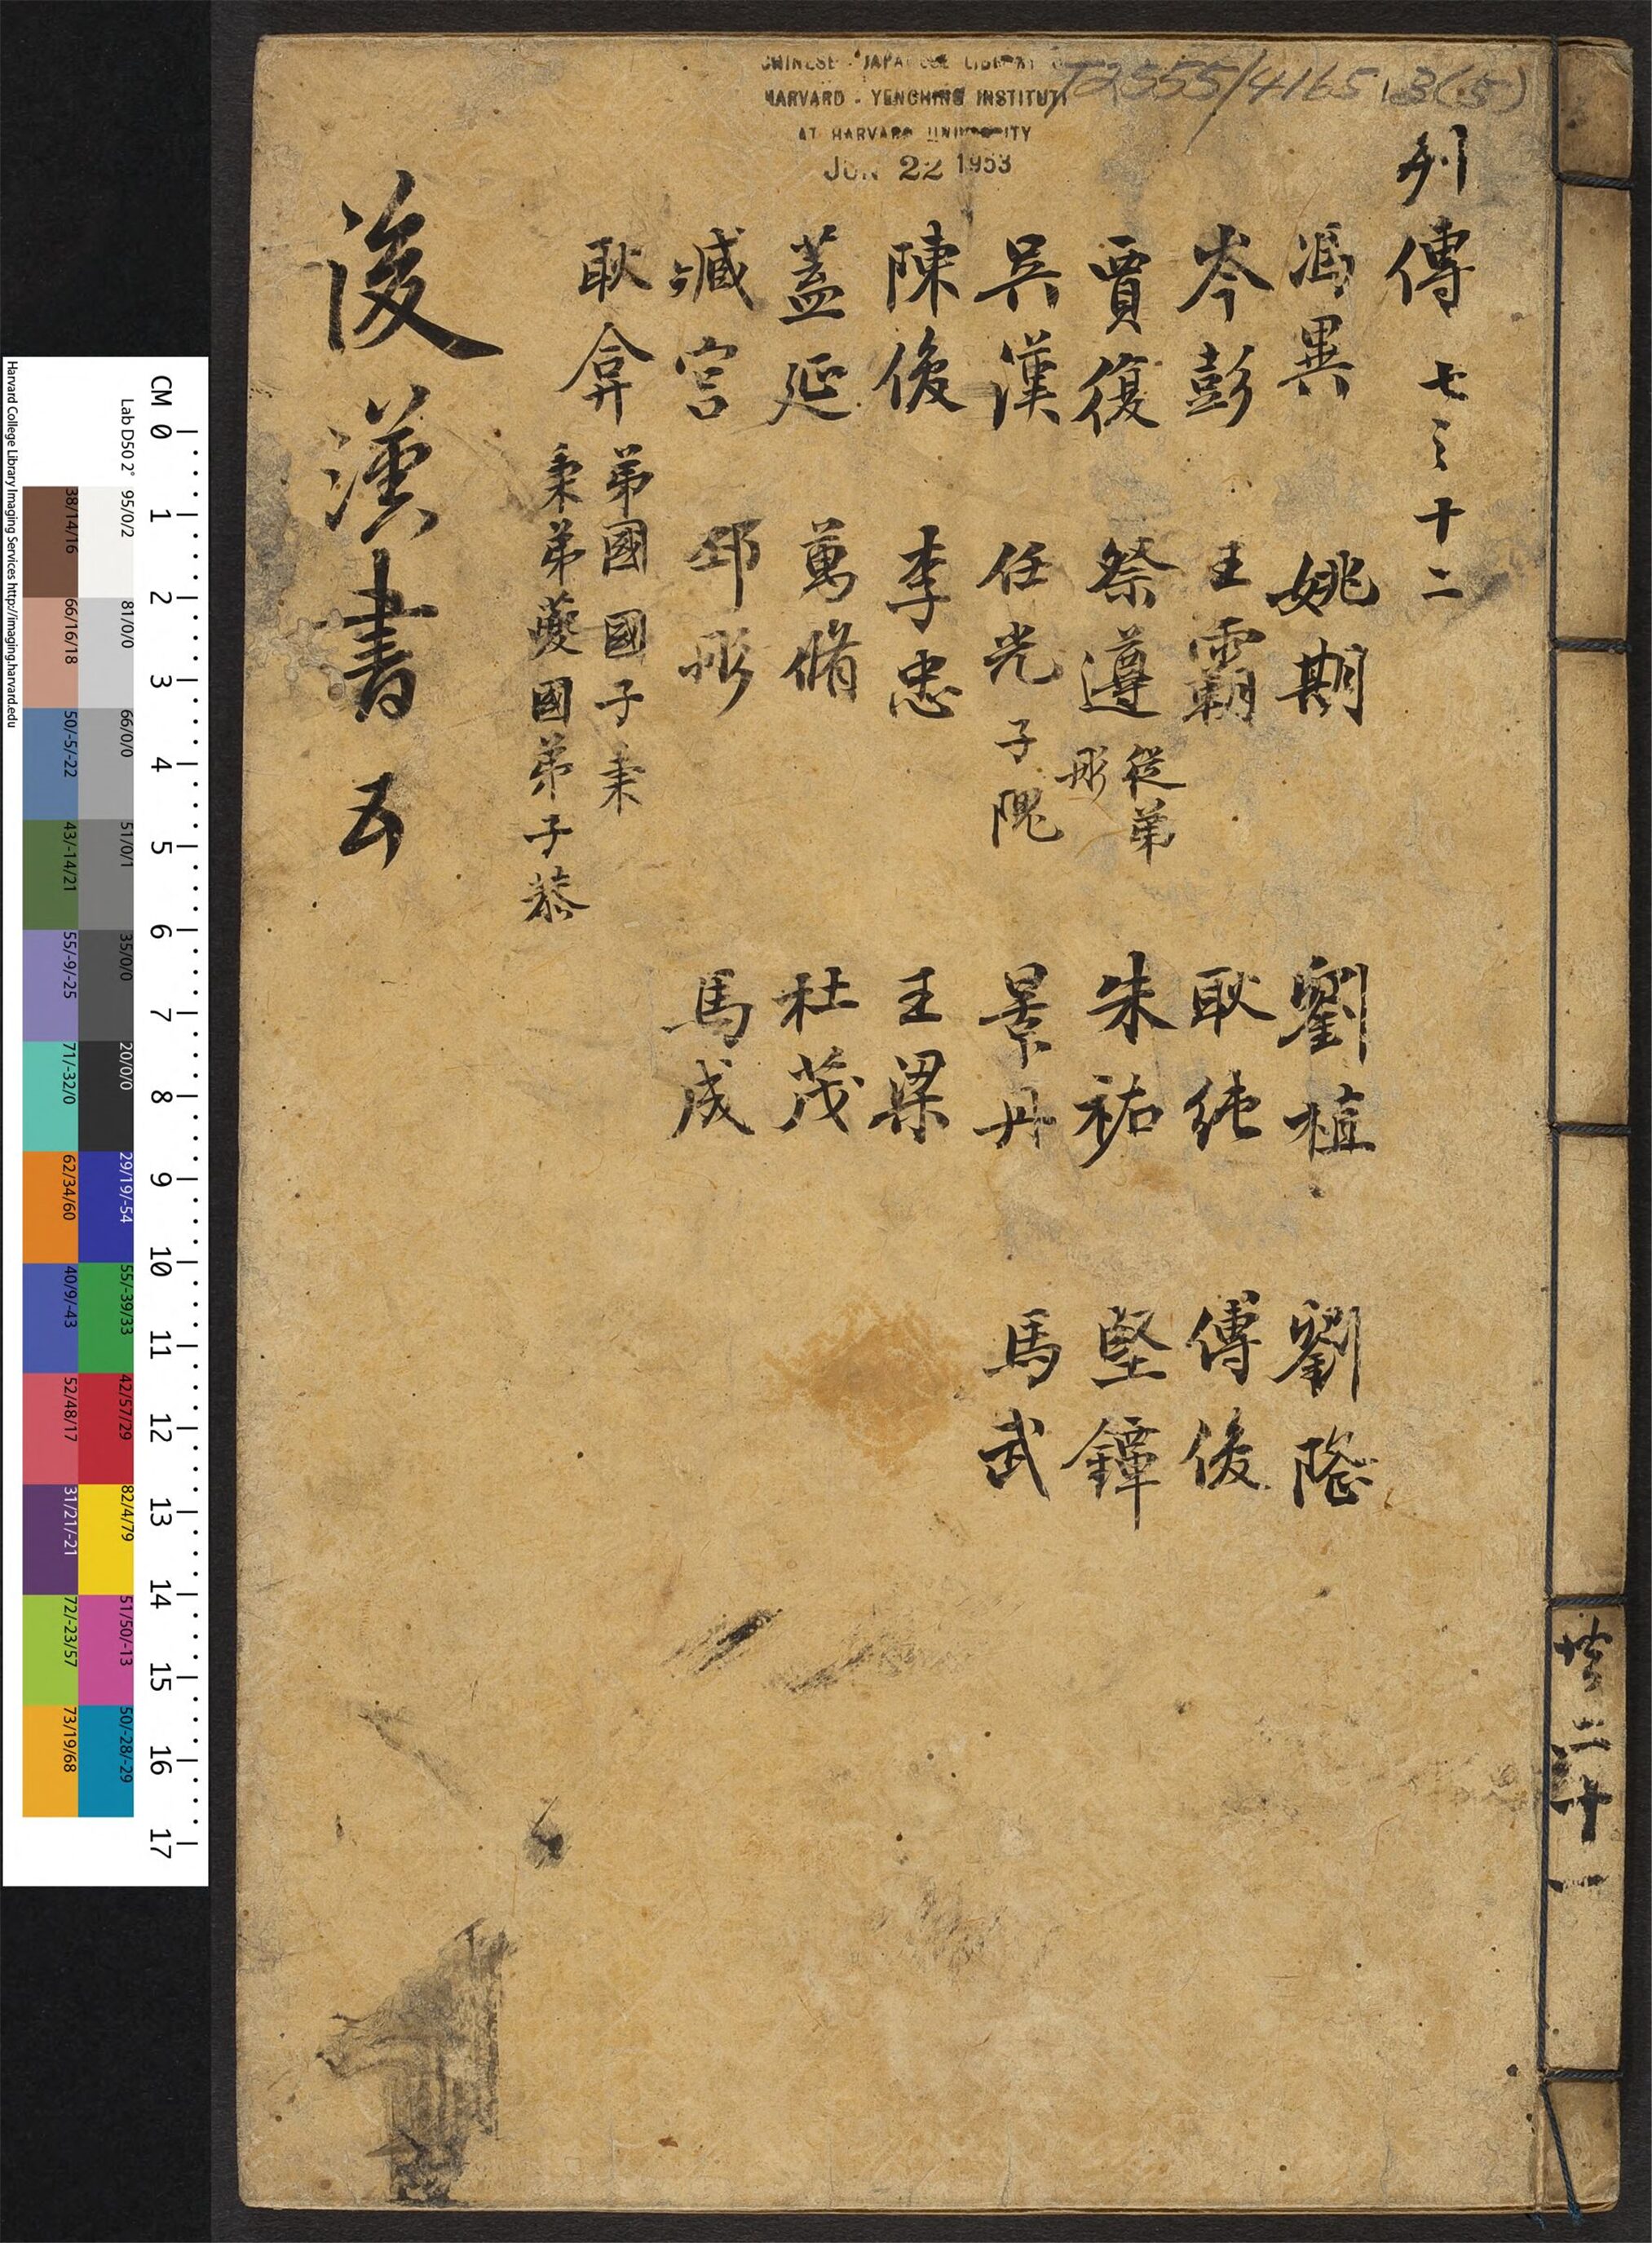 CHINESE - JAPANESE LIBRARY
HARVARD - YENCHING INSTITUTE
AT HARVARD UNIVERSITY
JUN 22 1953
T2555/4165.3(5)
列傳 七之十二
馮異 姚期 劉植 劉隆
岑彭 王霸 耿純 傅俊
賈復 祭遵 從弟肜 朱祐 堅鐔
吳漢 任光 子隗 景丹 馬武
陳俊 李忠 王梁
蓋延 萬脩 杜茂
臧宮 邳彤 馬成
耿弇 弟國 國子秉
秉弟夔 國弟子恭
後漢書 五
共二十一
CM 0 1 2 3 4 5 6 7 8 9 10 11 12 13 14 15 16 17
Lab D50 2° 95/0/2 81/0/0 66/0/0 51/0/1 35/0/0 20/0/0 29/19/-54 55/-39/33 42/57/29 82/4/79 51/50/-13 50/-28/-29
38/14/16 66/16/18 50/-5/-22 43/-14/21 55/-9/-25 71/-32/0 62/34/60 40/9/-43 52/48/17 31/21/-21 72/-23/57 73/19/68
Harvard College Library Imaging Services http://imaging.harvard.edu